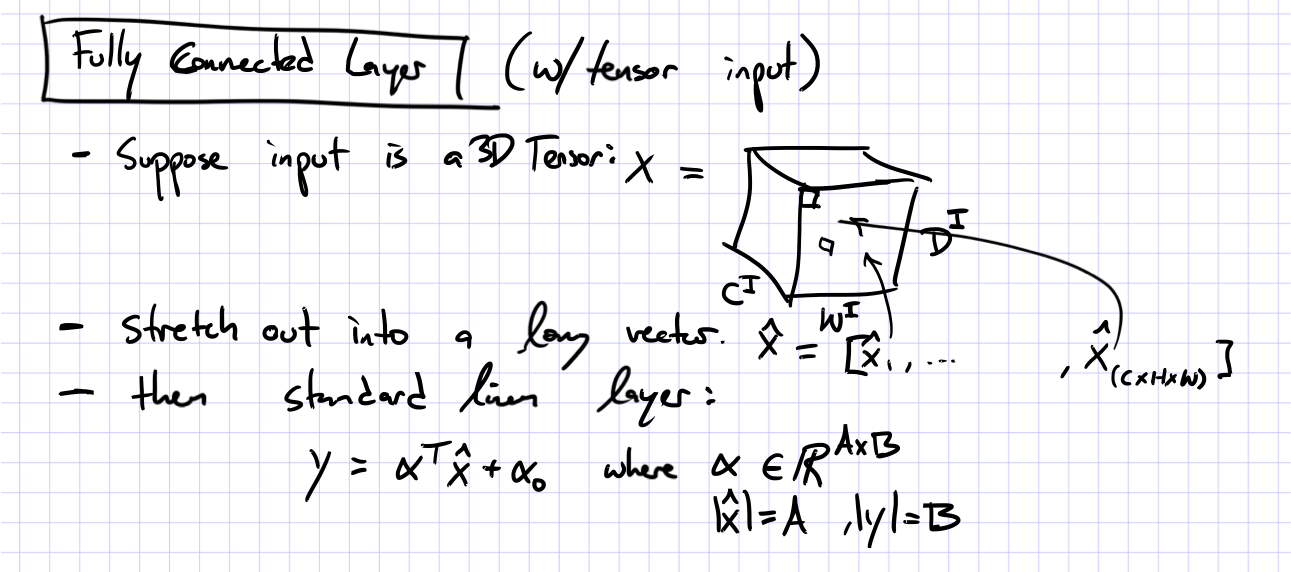 Fully Connected Layer (w/ tensor input)
- Suppose input is a 3D Tensor: X =
D^I
C^I
W^I
- stretch out into a long vector. x̂ = [x̂₁, ... , x̂_(C×H×W)]
- then standard linear layer:
y = α^T x̂ + α₀ where α ∈ ℝ^{A×B}
|x̂| = A , |y| = B